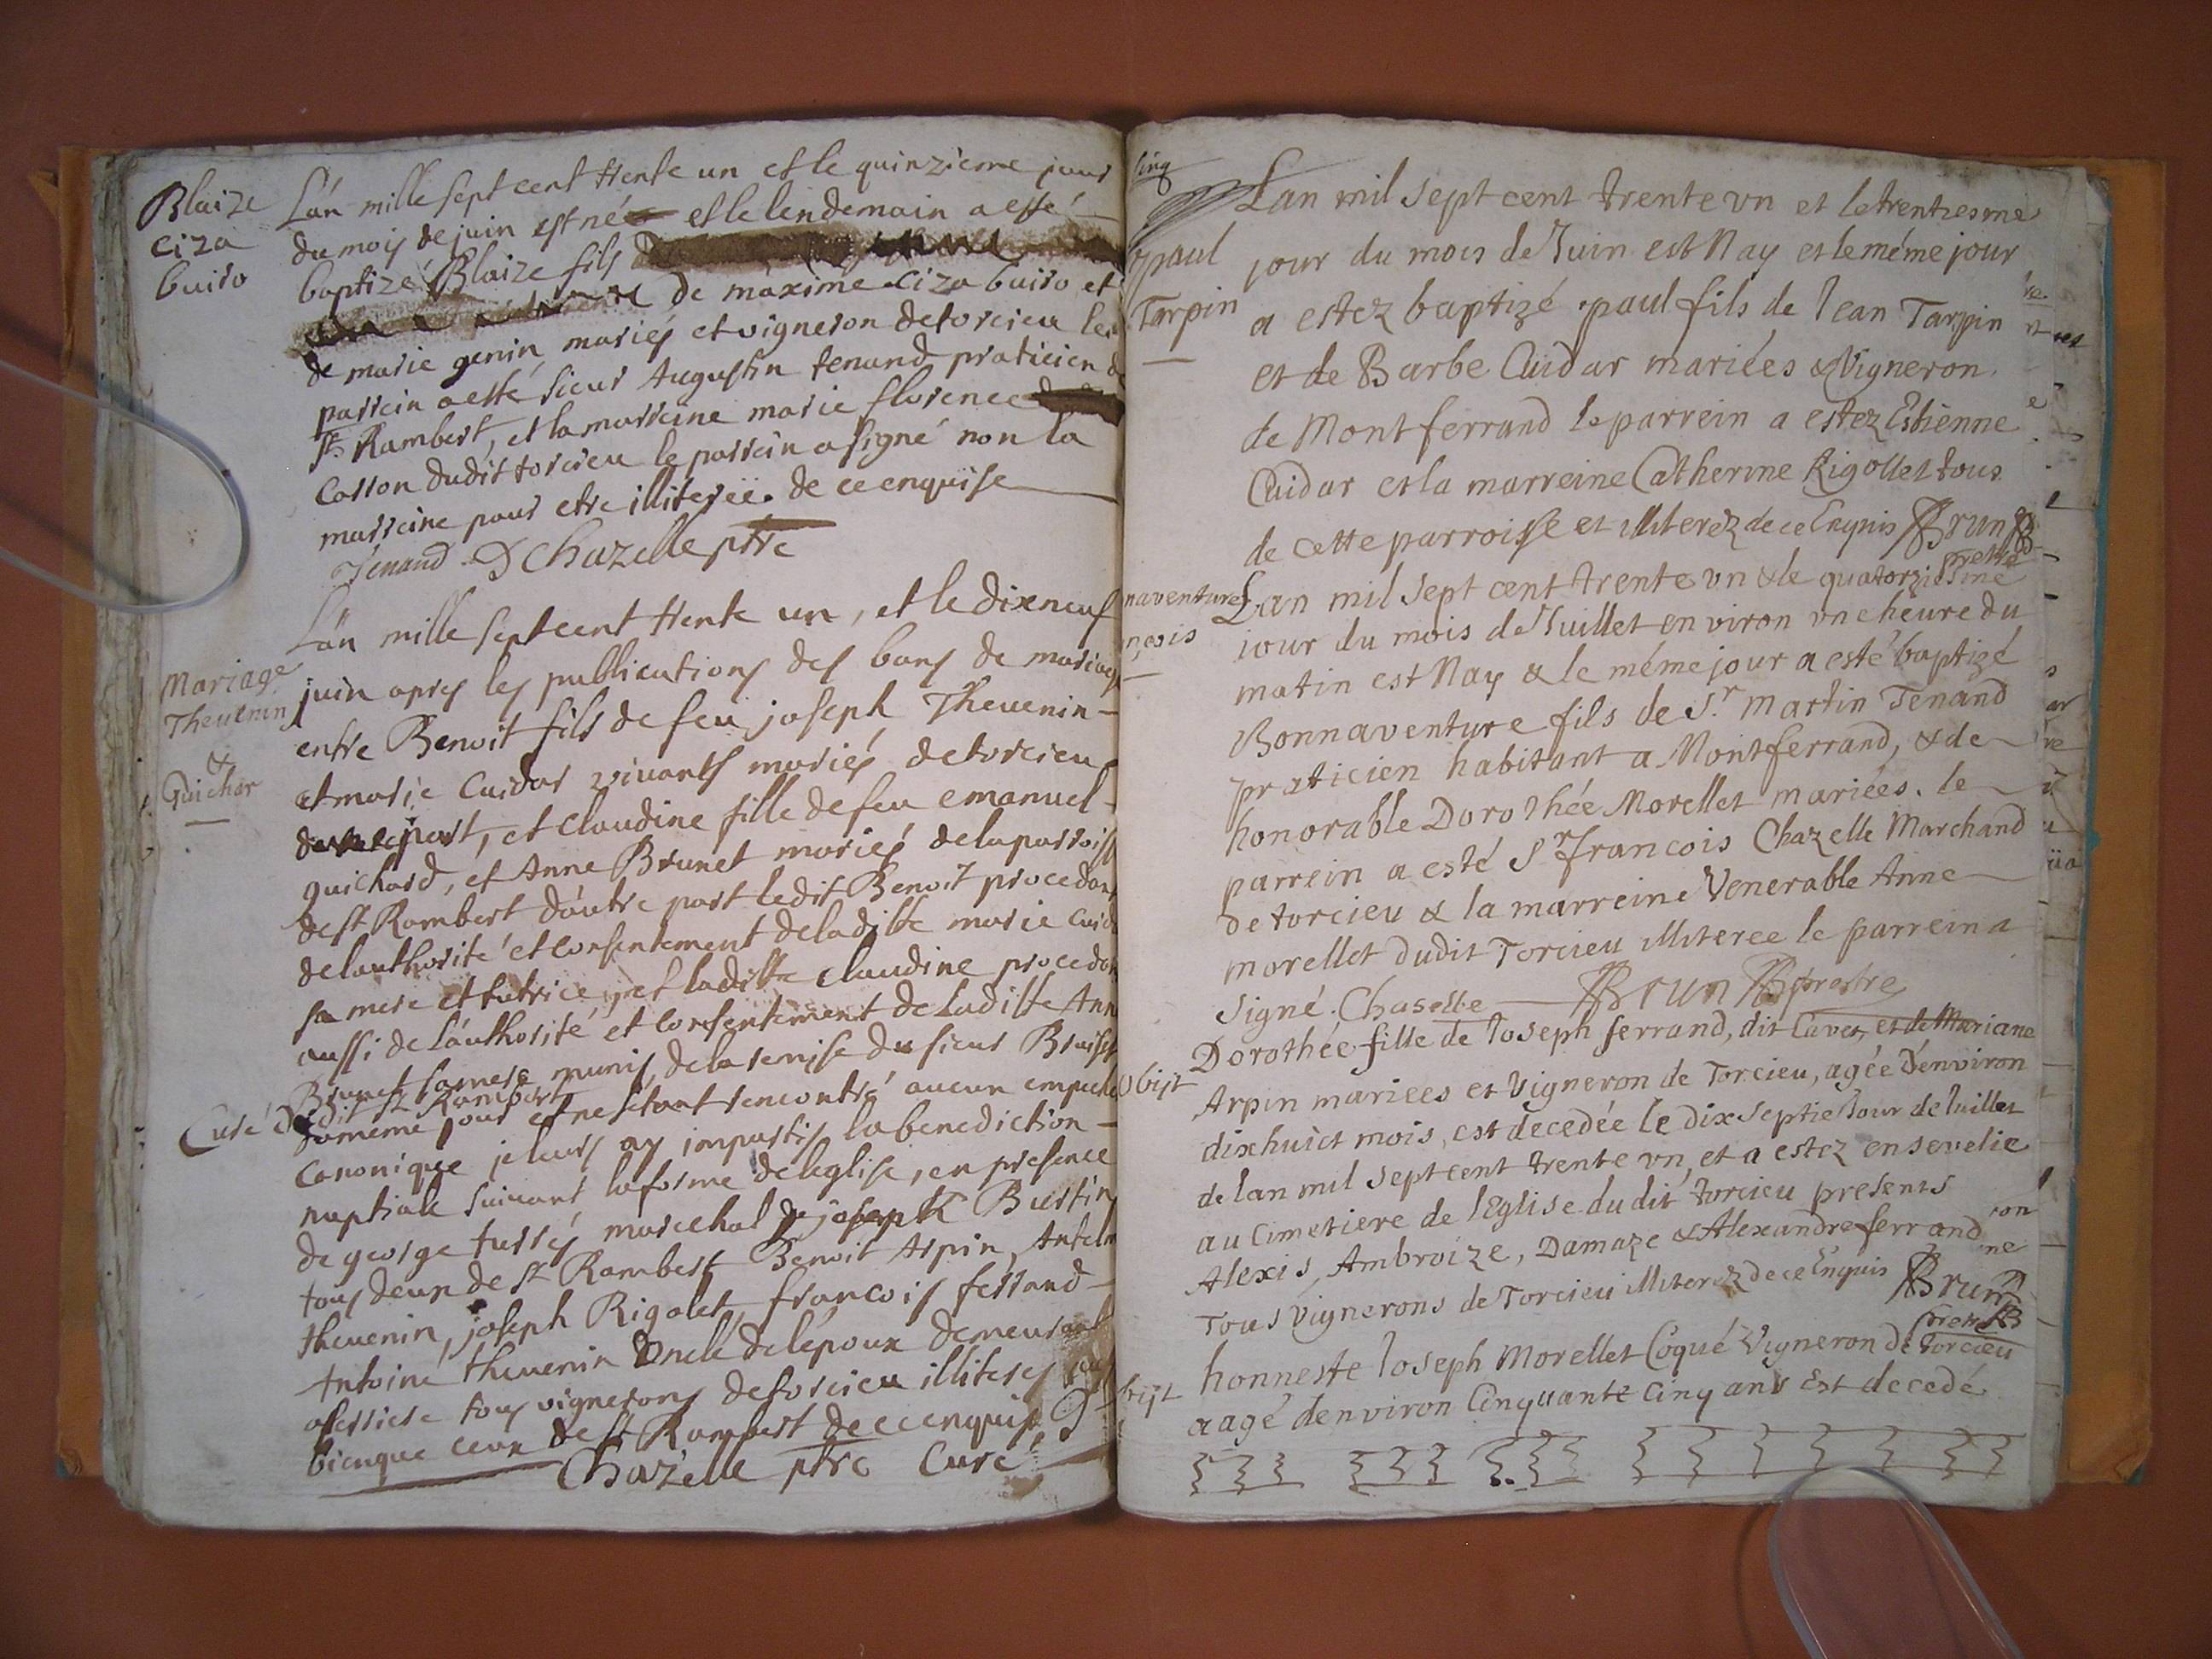 Blaize
Ciza
buiro
Lan mille sept cent trente un et le quinzieme jour
du mois de juin est né et le lendemain a esté
baptizé Blaize fils
de maxime Ciza buiro et
de marie genin mariés et vigneron de torcieu le
parrein a esté sieur Augustin tenand praticien de
st Rambert, et la marreine marie florence
Carron dudit torcieu le parrein a signé non la
marreine pour etre illiterëe. de ce enquise
Tenand D Chazelle ptre
Mariage
Thevenin
&
Guichar
Lan mille sept cent trente un, et le dixneuf
juin apres les publications des bans de mariage
entre Benoit fils de feu joseph Thevenin
et marie Cuidar vivants mariés de torcieu
part, et Claudine fille de feu emanuel
guichard, et Anne Brunet mariés de la parroisse
de st Rambert d'autre part ledit Benoit procedant
de lauthorité et consentement de laditte marie Cuid
sa mere et tutrice, et laditte Claudine procedan
aussi de lauthorité et consentement de laditte Ann
Brunet sa mere munis de la remise du sieur Bruiset
Curé dudit st Rambert
jour et ne s'etant rencontré aucun empeche
Canonique je leurs ay impartis la benediction
nuptiale suivant la forme de leglise, en presence
de george turrés marechal joseph Bustin
tous deux de st Rambert Benoit Arpin, Antelm
thevenin, joseph Rigolet, francois ferrand
Antoine thevenin Oncle de lépoux demeurant
tous vignerons de torcieu illiteres
bienque ceux de st Rambert de ce enquis
Chazelle ptre Curé
Cinq
paul
Tarpin
Lan mil sept cent trente vn et le trentiesme
jour du mois de Juin est Nay et le méme jour
a estez baptizé paul fils de Jean Tarpin
et de Barbe Cuidar mariées & Vigneron
de Montferrand le parrein a estez Estienne
Cuidar et la marreine Catherine Rigollet tous
de cette parroisse et illiterez de ce Enquis Brun
prestre
naventure
Lan mil sept cent trente vn & le quatorziesme
jour du mois de Juillet environ vne heure du
matin est Nay & le méme jour a esté baptizé
Bonnaventure fils de S.r Martin Tenand
praticien habitant a Montferrand, & de
honorable Dorothée Morellet mariées. le
parrein a esté S.r francois Chazelle Marchand
de torcieu & la marreine Venerable Anne
morellet dudit Torcieu illiteree le parrein a
signé. Chaselle Brun prestre
Obijt
Dorothée fille de Joseph ferrand, dit Cuvet, et de Mariane
Arpin mariees et Vigneron de Torcieu, agée denviron
dixhuict mois, est decedée le dix septie Jour de Juillet
de lan mil sept cent trente vn, et a estez ensevelie
au Cimetiere de lEglise dudit torcieu presents
Alexis, Ambroize, Damaze & Alexandre ferrand
Tous Vignerons de Torcieu illiterez de ce Enquis Brun
prestre
bijt
honneste Joseph Morellet Coqué Vigneron de Torcieu
aagé denviron Cinquante Cinq ans Est decedé